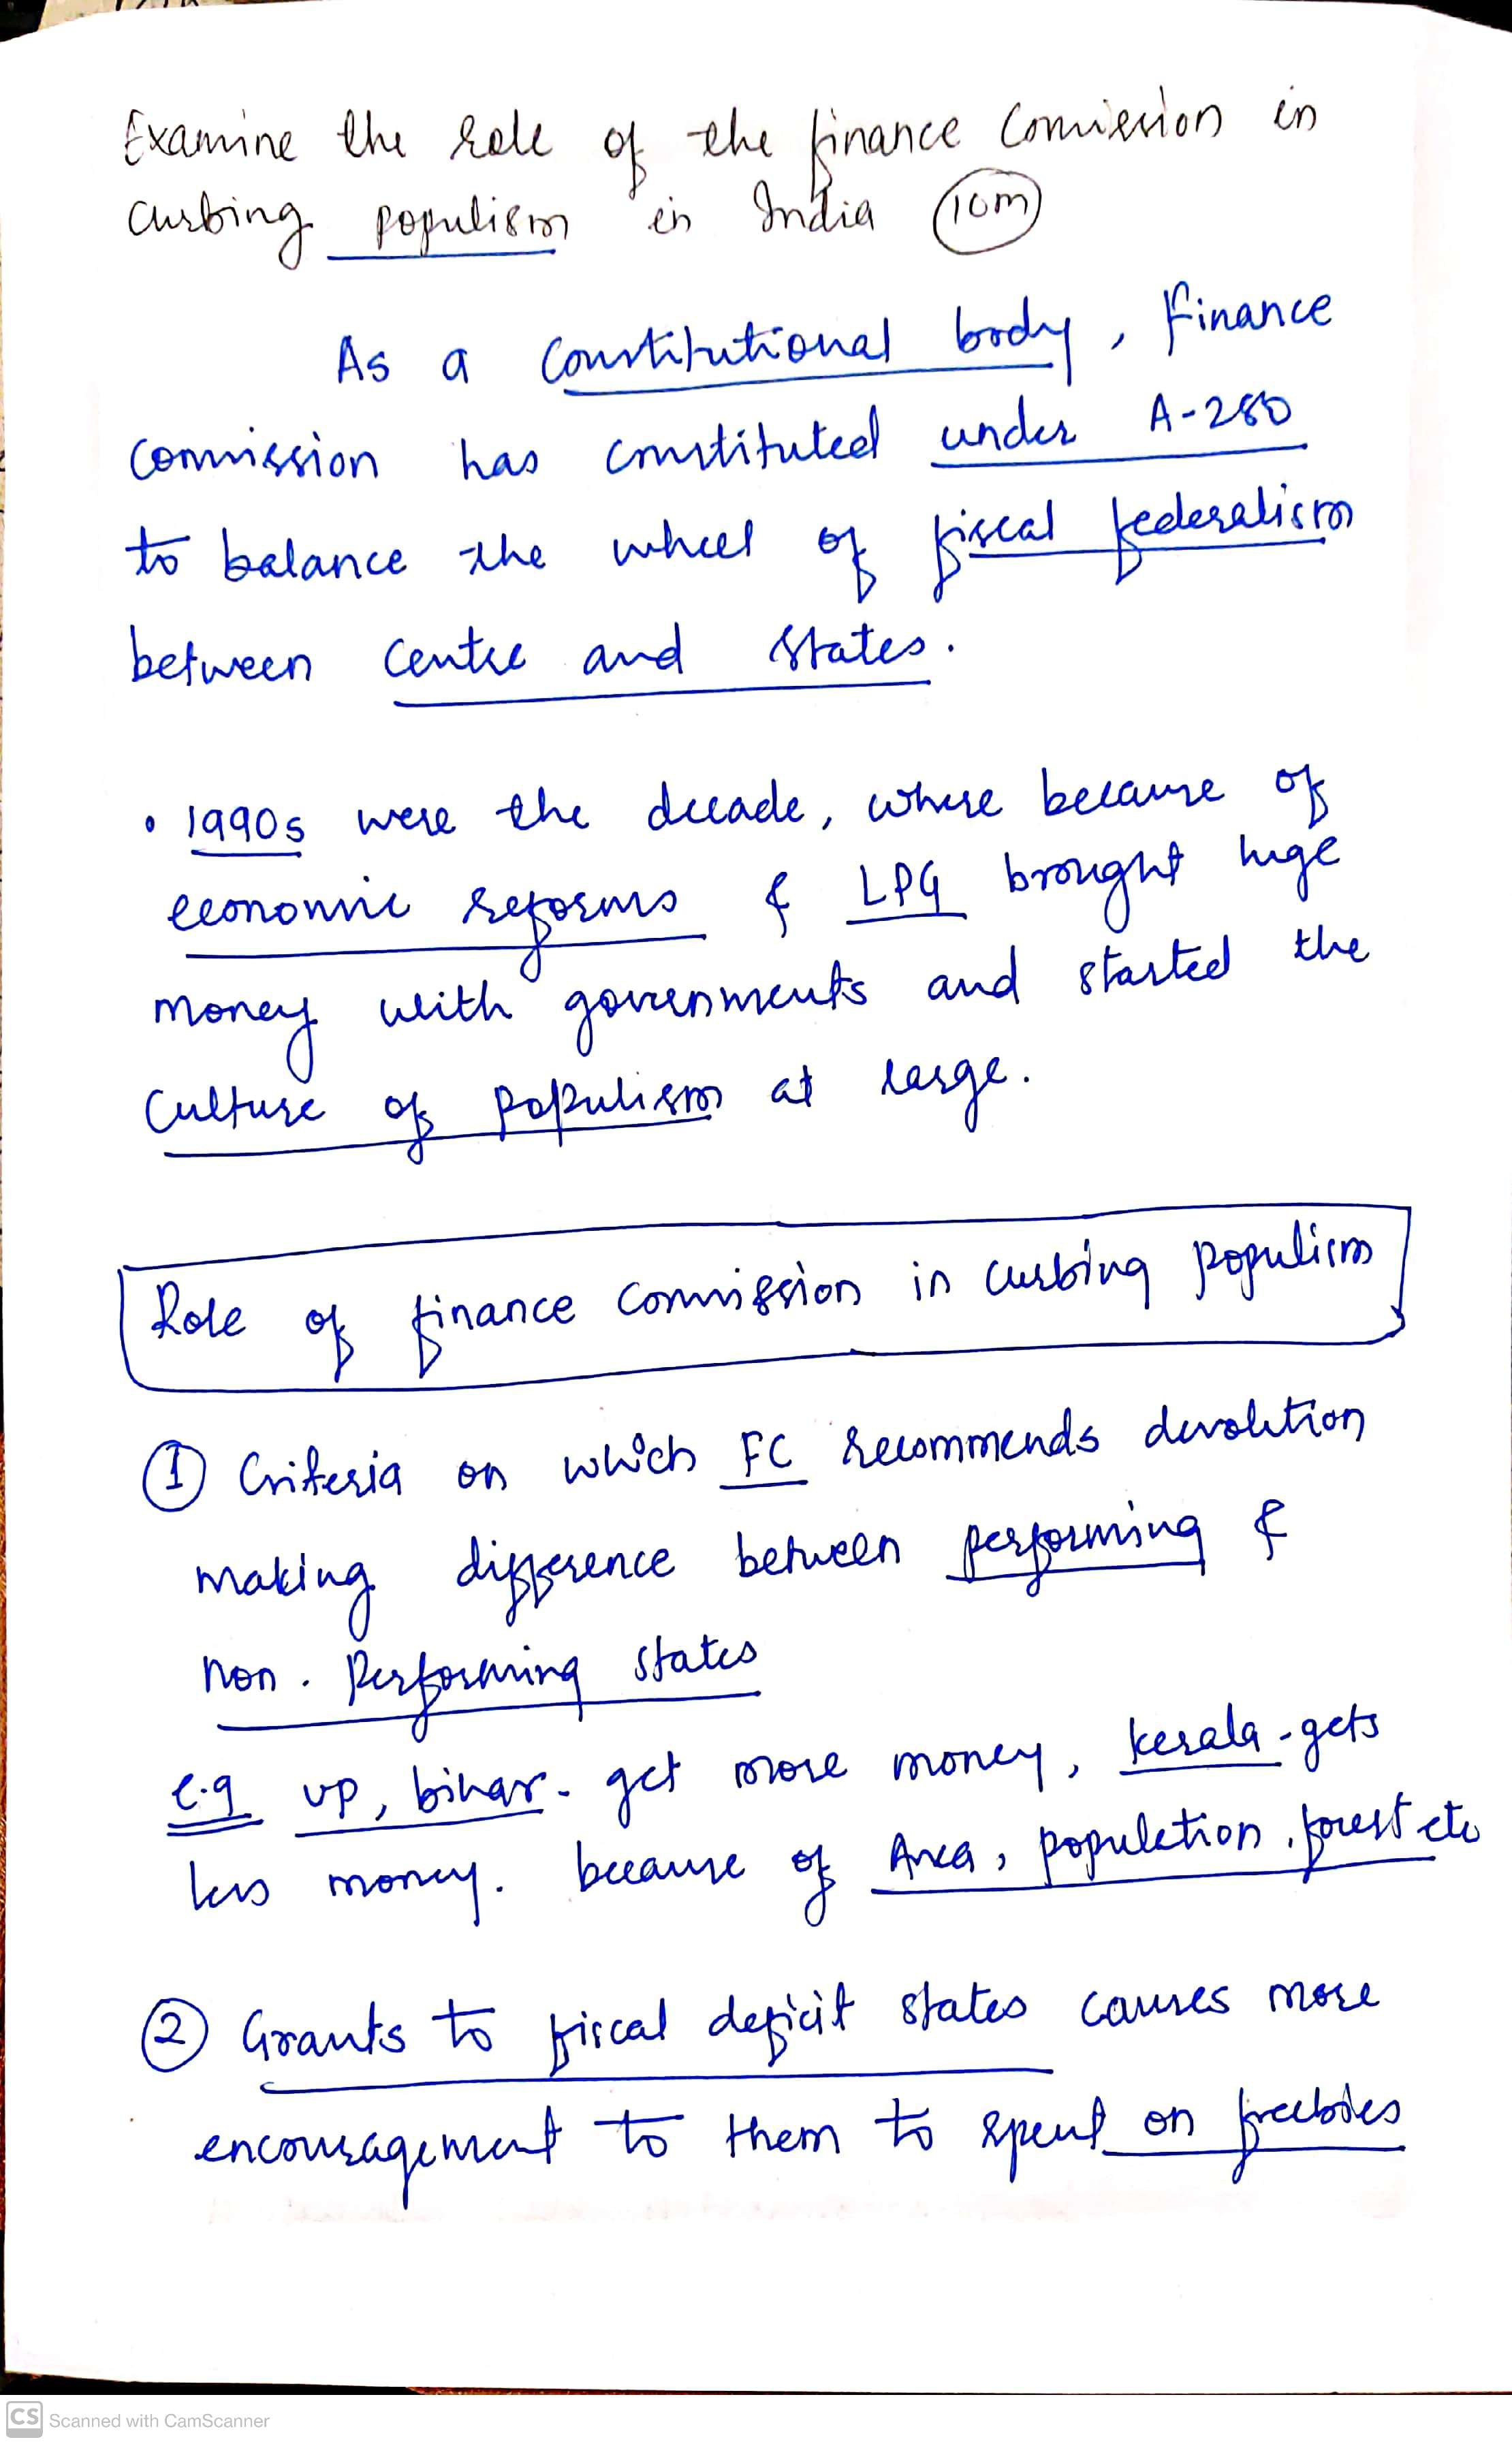 Examine the role of the finance Comission in
curbing populism in India (10m)
As a Constitutional body, Finance
Commission has constituted under A-280
to balance the wheel of fiscal federalism
between centre and states.
• 1990s were the decade, where because of
economic reforms & LPG brought huge
money with governments and started the
culture of populism at large.
Role of finance commission in curbing populism
① Criteria on which FC recommends devolution
making difference between performing &
non. Performing states
e.g UP, bihar - get more money, kerala - gets
less money. because of Area, population, forest etc
② Grants to fiscal deficit states causes more
encouragement to them to spent on freebies
CS Scanned with CamScanner